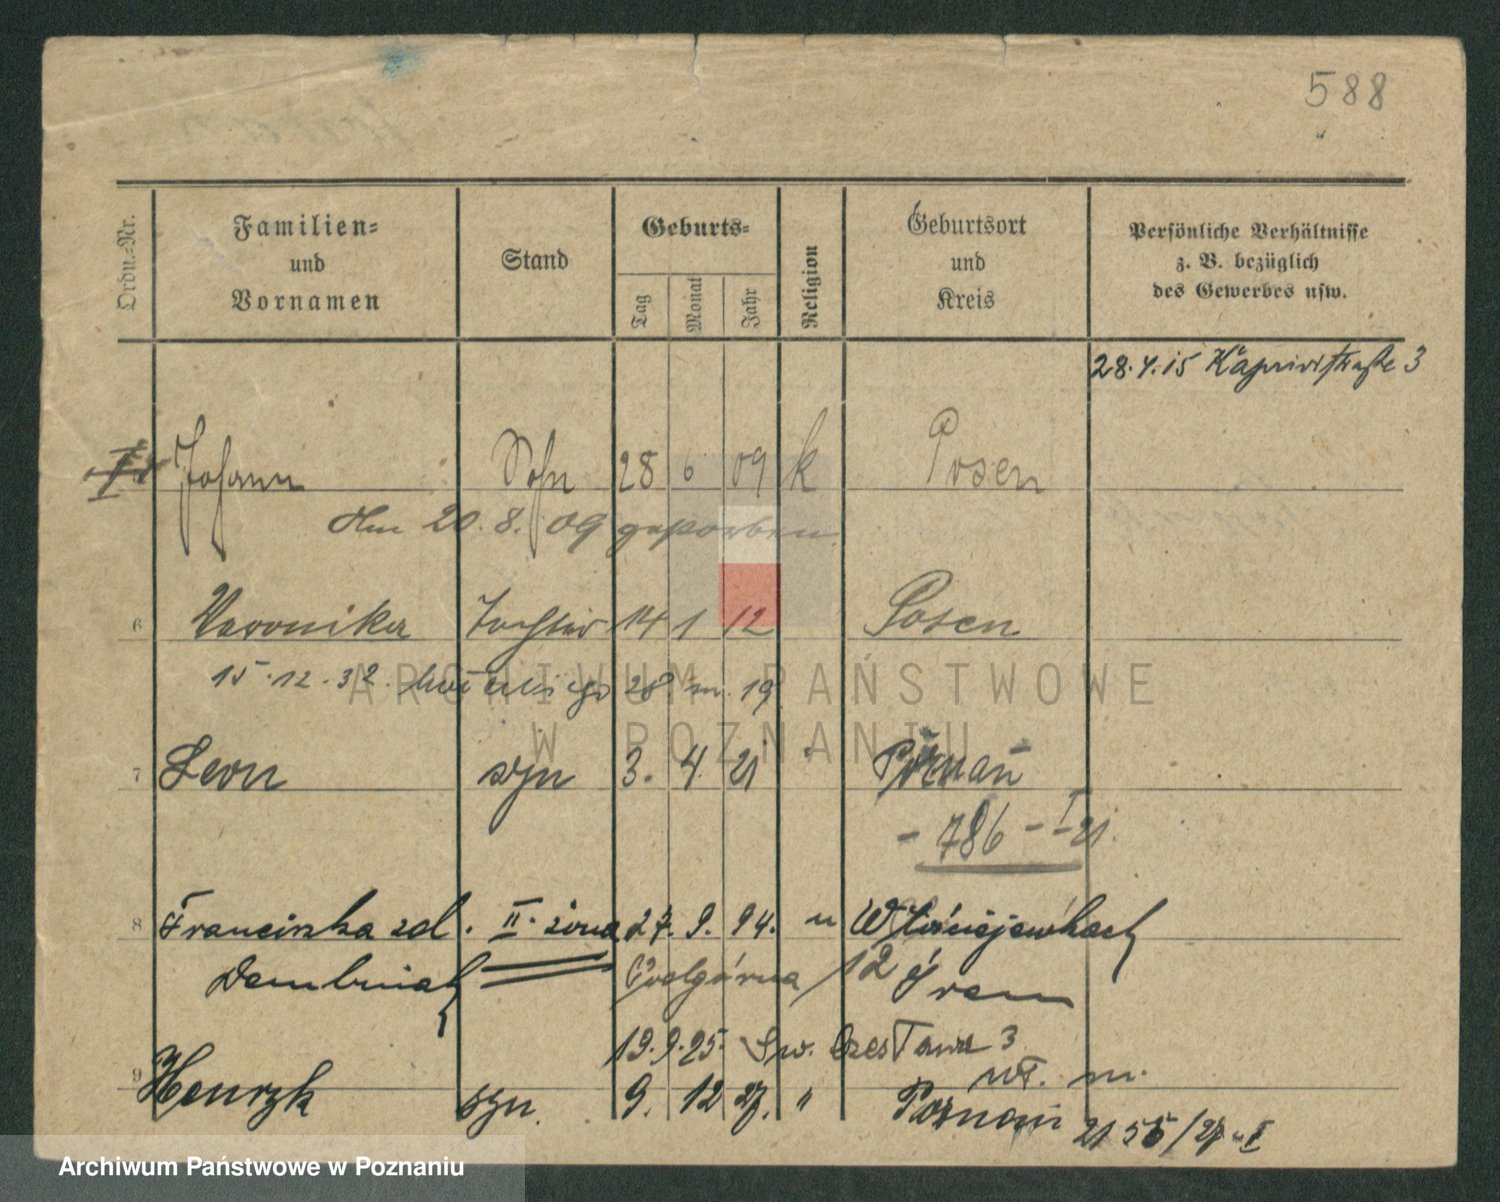 588
Ordn.-Nr.
Familien-
und
Vornamen
Stand
Geburts-
Tag
Monat
Jahr
Religion
Geburtsort
und
Kreis
Persönliche Verhältnisse
z. B. bezüglich
des Gewerbes usw.
28.4.15 Kaprivistraße 3
Johann Sohn 28 6 09 k Posen
Am 20.8.09 gestorben.
6 Veronika Tochter 14 1 12 Posen
15.12.32 28 m. 19
7 Leon syn 3. 4. 21 " Poznań
- 786 - I 21.
8 Franciszka zd. II. żona 27. 9. 94. " Włościejewkach
Dembniak Podgórna 12 śrem
19.9.25. Św. Czesława 3
wł. m.
9 Henryk syn. 9. 12 27. " Poznań 2155/27-I
ARCHIWUM PAŃSTWOWE
W POZNANIU
Archiwum Państwowe w Poznaniu